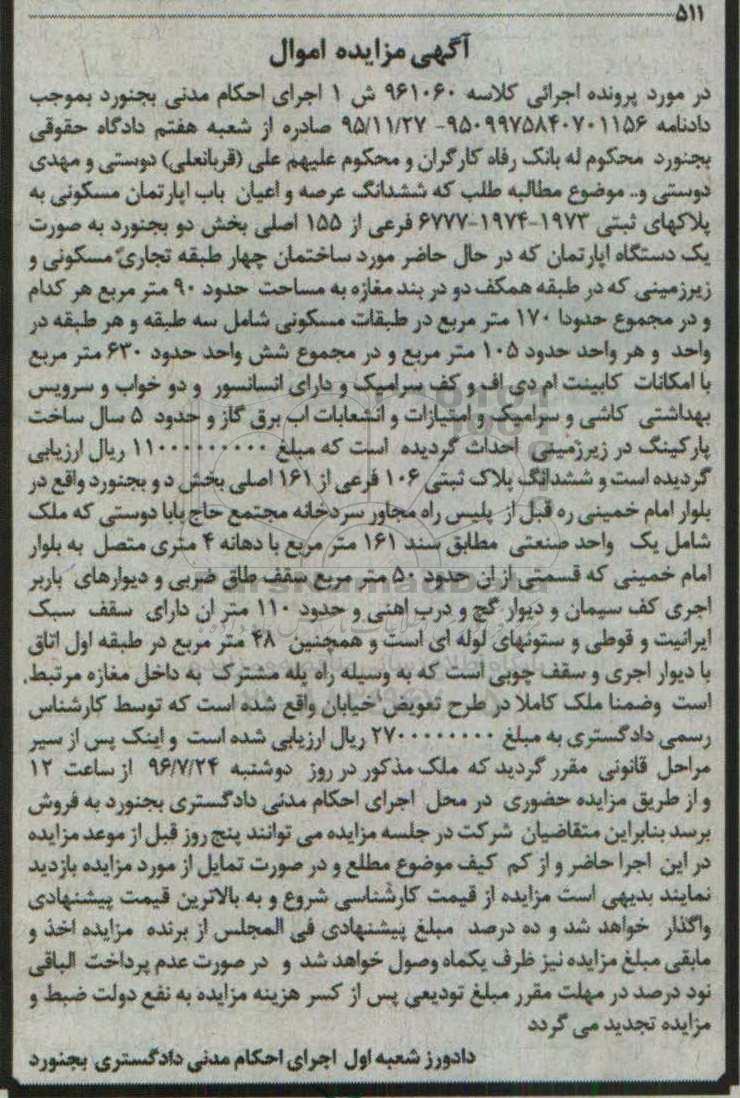 ۵۱۱
آگهی مزایده اموال
در مورد پرونده اجرائی کلاسه ۹۶۱۰۶۰ ش ۱ اجرای احکام مدنی بجنورد بموجب
دادنامه ۹۵۰۹۹۷۵۸۴۰۷۰۱۱۵۶- ۹۵/۱۱/۲۷ صادره از شعبه هفتم دادگاه حقوقی
بجنورد محکوم له بانک رفاه کارگران و محکوم علیهم علی (قربانعلی) دوستی و مهدی
دوستی و.. موضوع مطالبه طلب که ششدانگ عرصه و اعیان باب اپارتمان مسکونی به
پلاکهای ثبتی ۱۹۷۳-۱۹۷۴-۶۷۷۷ فرعی از ۱۵۵ اصلی بخش دو بجنورد به صورت
یک دستگاه اپارتمان که در حال حاضر مورد ساختمان چهار طبقه تجاری مسکونی و
زیرزمینی که در طبقه همکف دو در بند مغازه به مساحت حدود ۹۰ متر مربع هر کدام
و در مجموع حدودا ۱۷۰ متر مربع در طبقات مسکونی شامل سه طبقه و هر طبقه در
واحد و هر واحد حدود ۱۰۵ متر مربع و در مجموع شش واحد حدود ۶۳۰ متر مربع
با امکانات کابینت ام دی اف و کف سرامیک و دارای انسانسور و دو خواب و سرویس
بهداشتی کاشی و سرامیک و امتیازات و انشعابات اب برق گاز و حدود ۵ سال ساخت
پارکینگ در زیرزمینی احداث گردیده است که مبلغ ۱۱۰۰۰۰۰۰۰۰۰ ریال ارزیابی
گردیده است و ششدانگ پلاک ثبتی ۱۰۶ فرعی از ۱۶۱ اصلی بخش دو بجنورد واقع در
بلوار امام خمینی ره قبل از پلیس راه مجاور سردخانه مجتمع حاج بابا دوستی که ملک
شامل یک واحد صنعتی مطابق سند ۱۶۱ متر مربع با دهانه ۴ متری متصل به بلوار
امام خمینی که قسمتی از ان حدود ۵۰ متر مربع سقف طاق ضربی و دیوارهای باربر
اجری کف سیمان و دیوار گچ و درب اهنی و حدود ۱۱۰ متر ان دارای سقف سبک
ایرانیت و قوطی و ستونهای لوله ای است و همچنین ۴۸ متر مربع در طبقه اول اتاق
با دیوار اجری و سقف چوبی است که به وسیله راه پله مشترک به داخل مغازه مرتبط.
است وضمنا ملک کاملا در طرح تعویض خیابان واقع شده است که توسط کارشناس
رسمی دادگستری به مبلغ ۲۷۰۰۰۰۰۰۰۰ ریال ارزیابی شده است و اینک پس از سیر
مراحل قانونی مقرر گردید که ملک مذکور در روز دوشنبه ۹۶/۷/۲۴ از ساعت ۱۲
و از طریق مزایده حضوری در محل اجرای احکام مدنی دادگستری بجنورد به فروش
برسد بنابراین متقاضیان شرکت در جلسه مزایده می توانند پنج روز قبل از موعد مزایده
در این اجرا حاضر و از کم کیف موضوع مطلع و در صورت تمایل از مورد مزایده بازدید
نمایند بدیهی است مزایده از قیمت کارشناسی شروع و به بالاترین قیمت پیشنهادی
واگذار خواهد شد و ده درصد مبلغ پیشنهادی فی المجلس از برنده مزایده اخذ و
مابقی مبلغ مزایده نیز ظرف یکماه وصول خواهد شد و در صورت عدم پرداخت الباقی
نود درصد در مهلت مقرر مبلغ تودیعی پس از کسر هزینه مزایده به نفع دولت ضبط و
مزایده تجدید می گردد
دادورز شعبه اول اجرای احکام مدنی دادگستری بجنورد